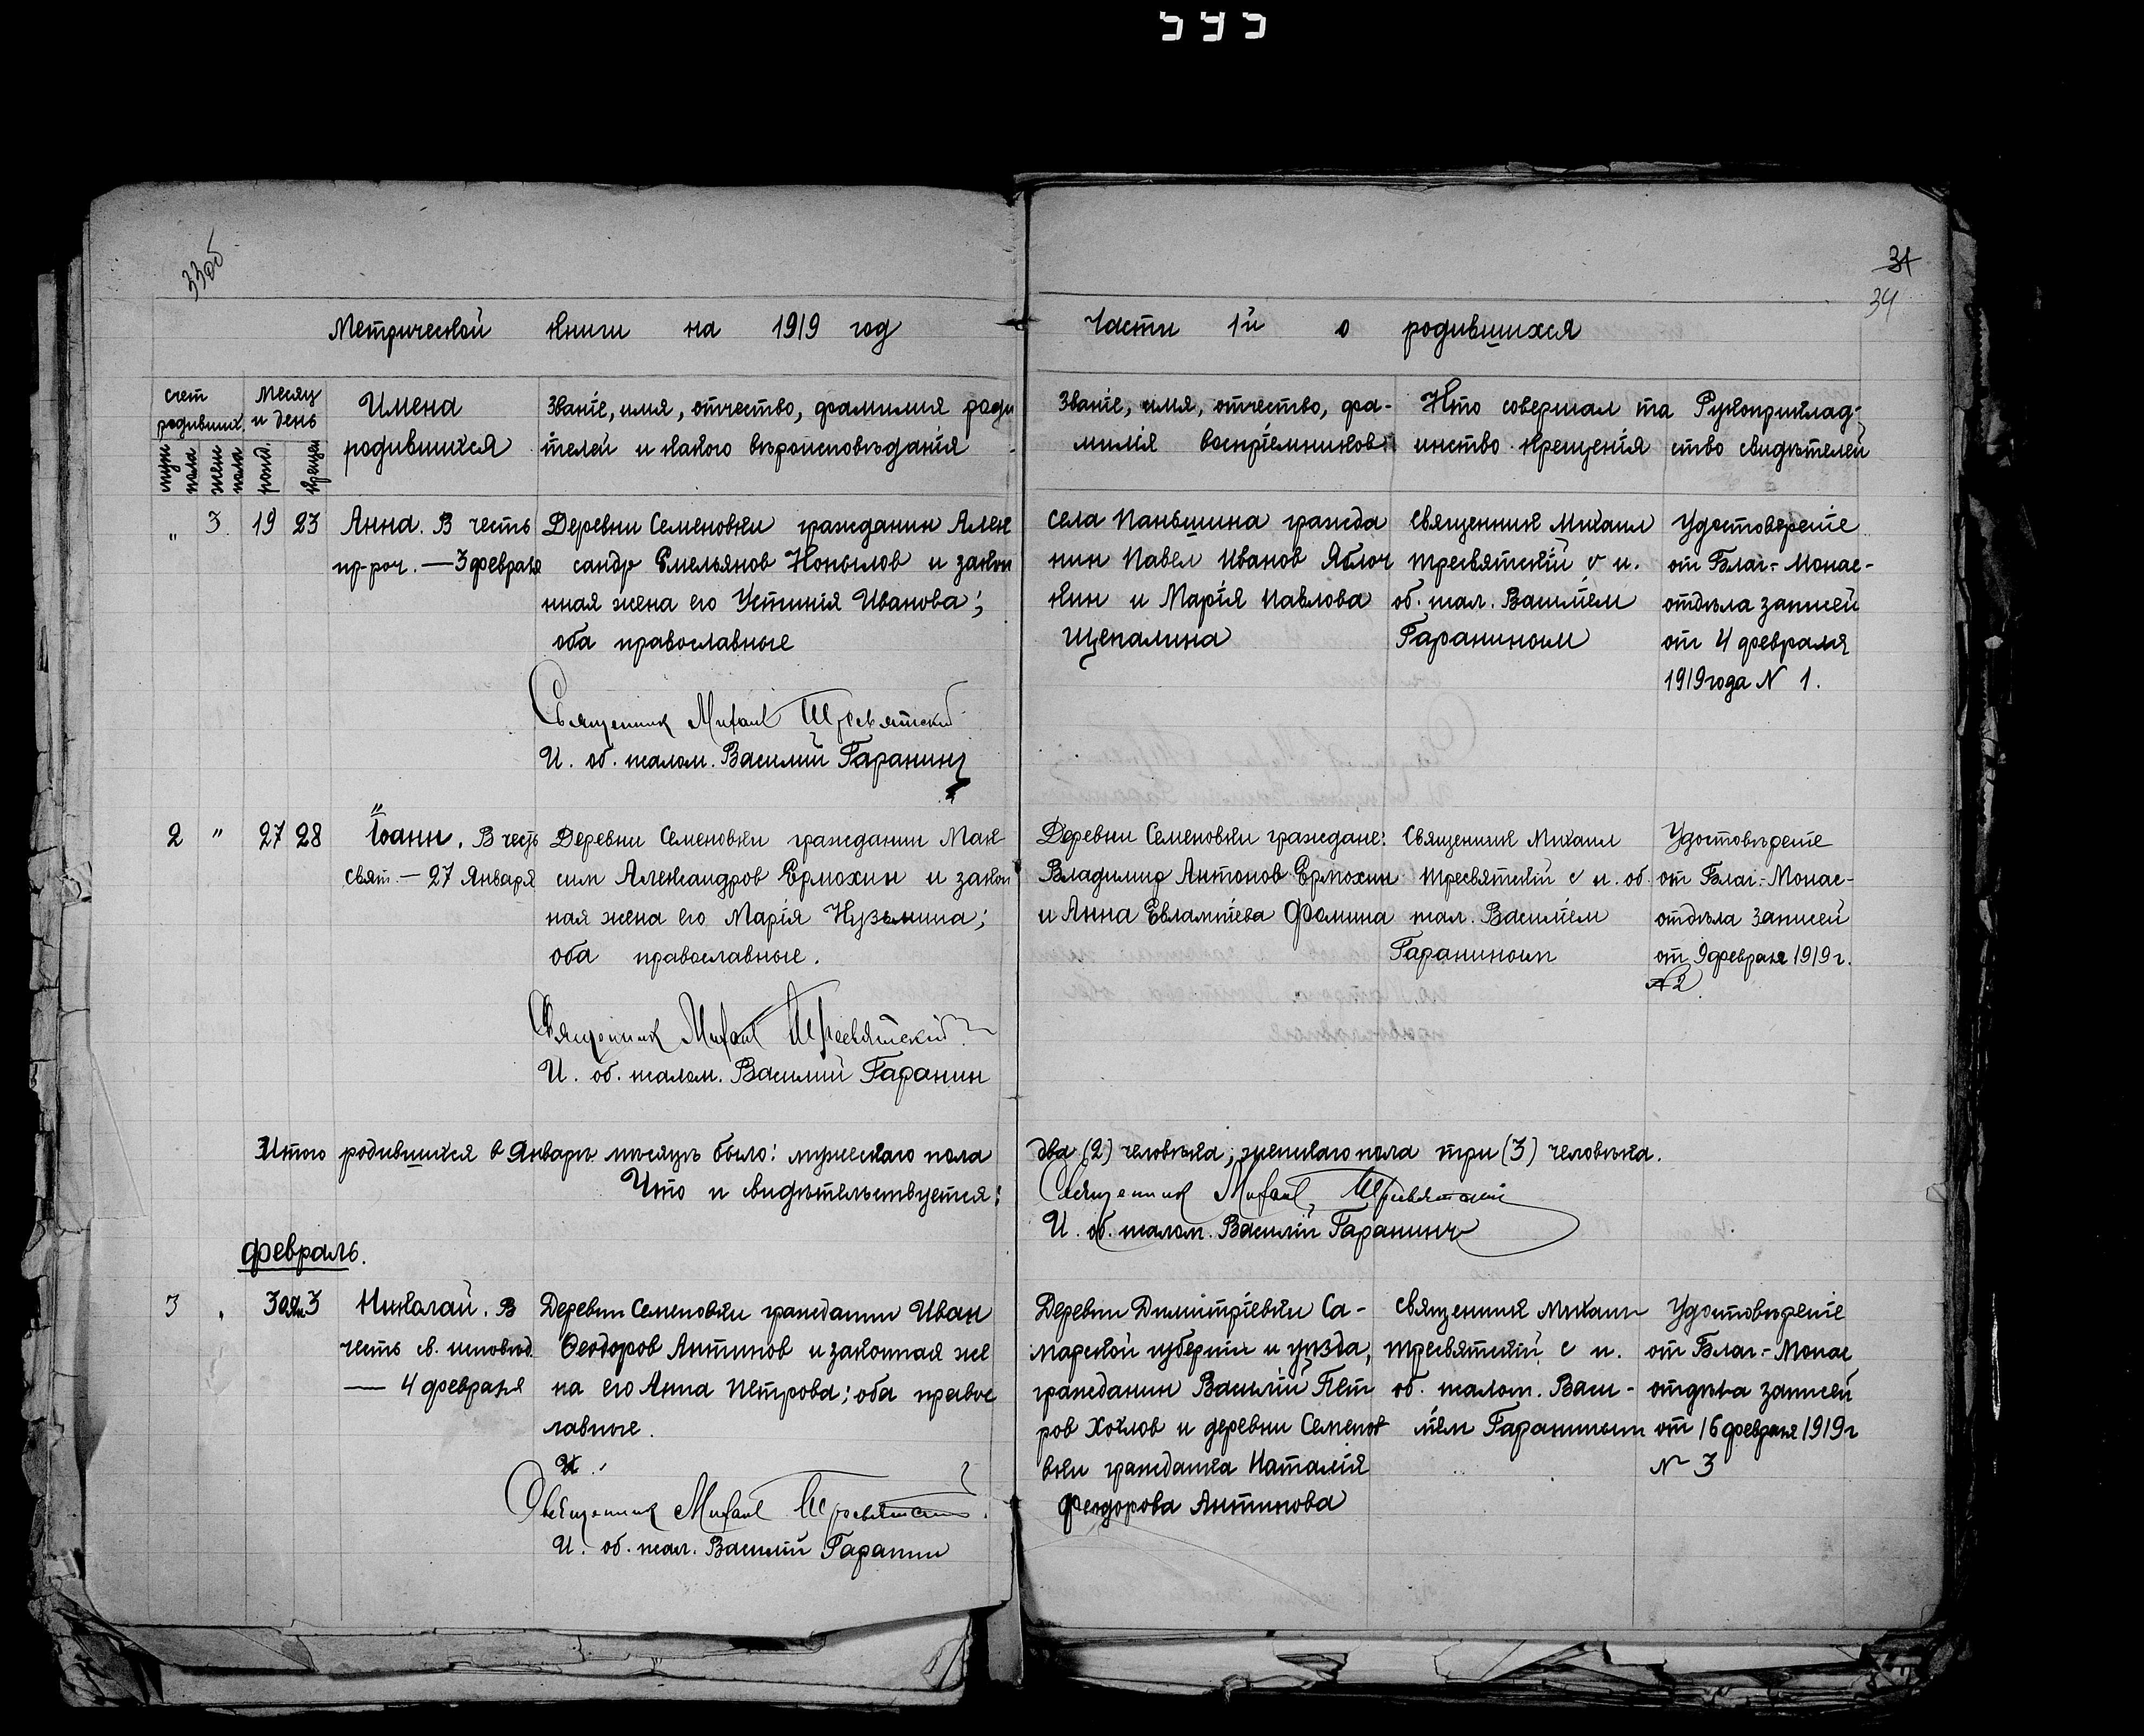 33об
31
34
Метрической книги на 1919 год
Части 1й о родившихся
счет родивших.
месяц и день
муж пола
жен пола
рожд.
крещен
Имена родившихся
Званіе, имя, отчество, фамилия роди
телей и какого вѣроисповѣданія
Званіе, имя, отчество, фа-
милія воспріемников
Кто совершал та
инство крещенія
Рукоприклад-
ство свидѣтелей
" 3. 19 23
Анна. В честь
пр-роч. — 3 февраля
Деревни Семеновки гражданин Алек
сандр Емельянов Копылов и закон
нная жена его Устинія Иванова;
оба православные
Священник Михаил Тресвятский
И. об. псалом. Василий Гаранин
села Паньшина гражда
нин Павел Иванов Яблоч
кин и Марія Павлова
Щепалина
священник Михаил
Тресвятскій с и.
об. псал. Василіем
Гараниным
Удостоверение
от Благ.-Монас-
отдѣла записей
от 4 февраля
1919 года N 1.
2 " 27 28
Іоанн. В честь
свят. — 27 Января
Деревни Семеновки гражданин Мак
сим Александров Ермохин и закон
ная жена его Марія Кузьмина;
оба православные.
Священник Михаил Тресвятский
И. об. псалом. Василий Гаранин
Деревни Семеновки граждане:
Владимир Антонов Ермохин
и Анна Евлампіева Фомина
священник Михаил
Тресвятскій с и. об.
псал. Василіем
Гараниным
Удостовѣрение
от Благ.-Монас-
отдѣла записей
от 9 февраля 1919 г.
N 2
Итого родившихся в Январѣ мѣсяцѣ было: мужескаго пола
два (2) человѣка; женскаго пола три (3) человѣка.
Что и свидѣтельствуется:
Священник Михаил Тресвятский
И. об. псалом. Василій Гаранин
февраль.
3 " 30 Ян. 3
Николай. В
честь св. исповѣд.
— 4 февраля
Деревни Семеновки гражданин Иван
Ѳеодоров Антипов и законная же
на его Анна Петрова; оба правос
лавные.
Священник Михаил Тресвятский
И. об. псал. Василий Гаранин
Деревни Димитріевки Са-
марской губерніи и уѣзда,
гражданин Василій Пет
ров Хохлов и деревни Семенов
вки гражданка Наталія
Феодорова Антипова
священник Михаил
Тресвятскій с и.
об. псалом. Васи-
ліем Гараниным
Удостовѣрение
от Благ.-Монас
отдѣла записей
от 16 февраля 1919 г
N 3